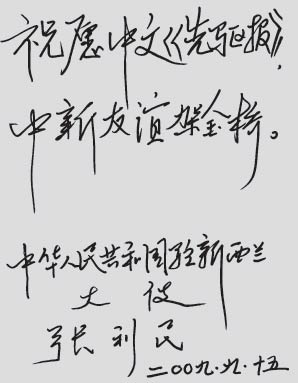 祝愿中文《先驱报》,
中新友谊架金桥。
中华人民共和国驻新西兰
大使
张利民
二〇〇九.九.十五